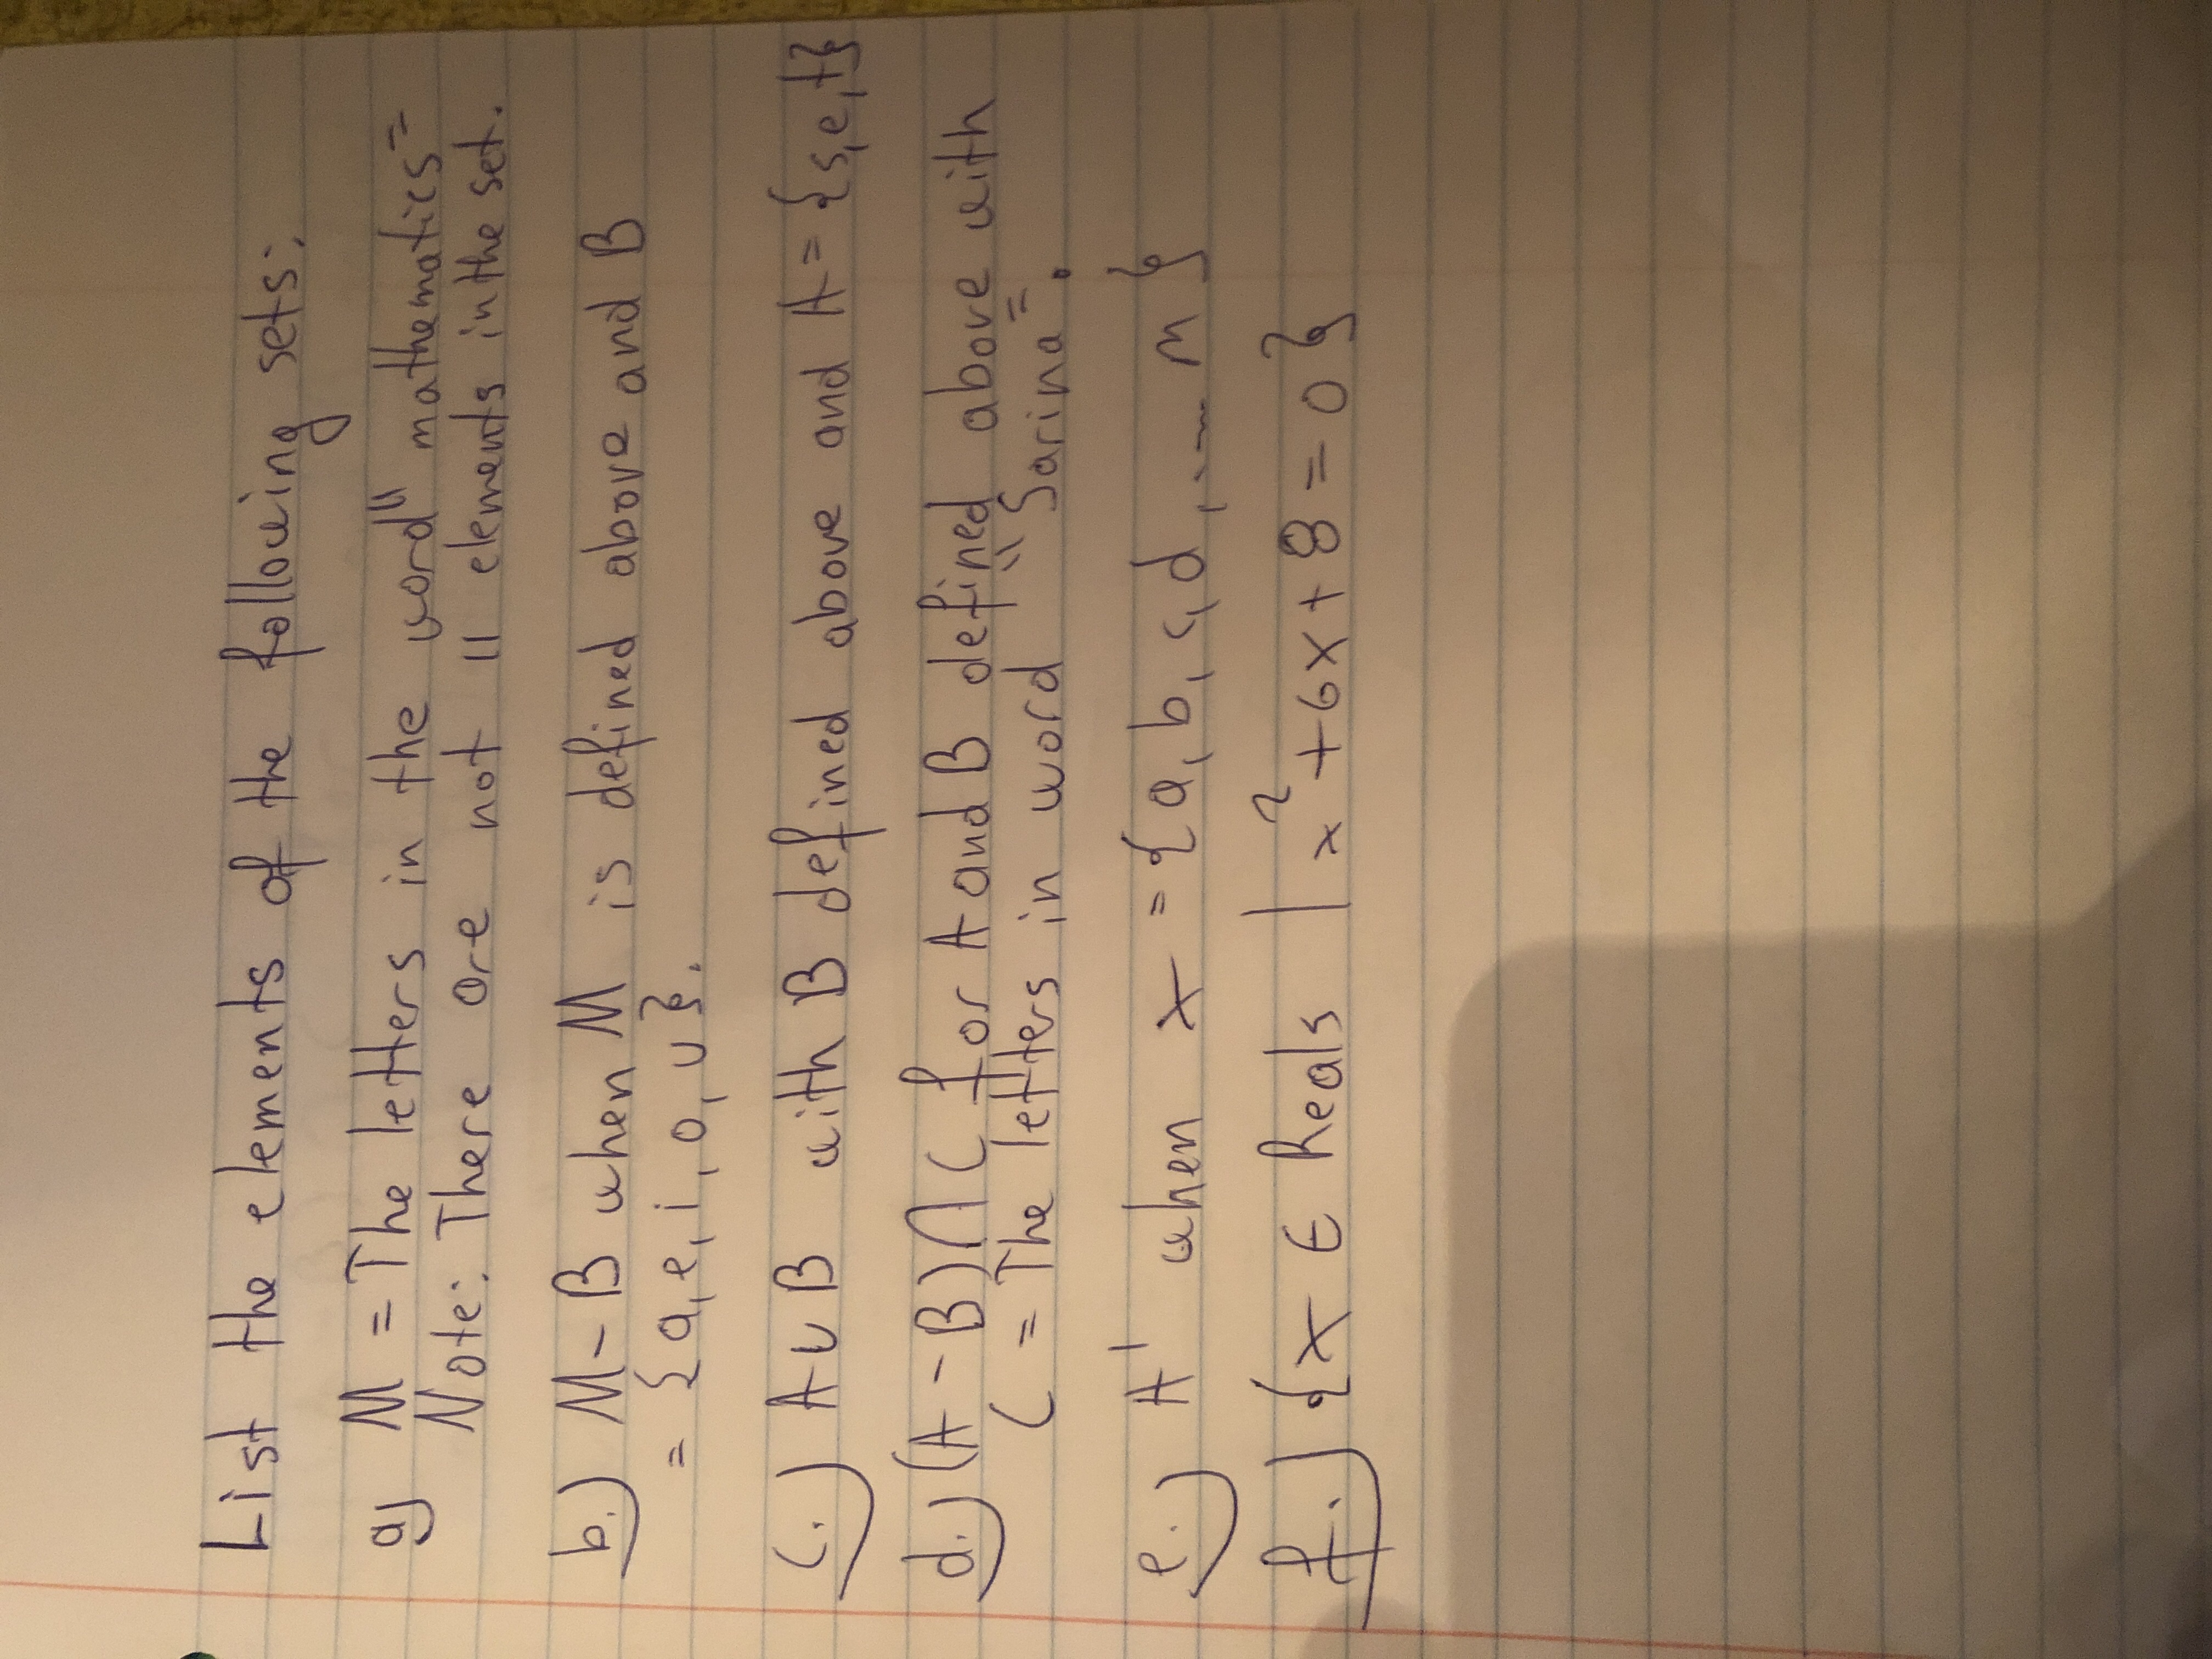 List the elements of the following sets:
a) M = The letters in the word "mathematics"
Note: There are not 11 elements in the set.
b.) M - B when M is defined above and B
= {a, e, i, o, u}.
c.) A ∪ B with B defined above and A = {s, e, t}
d.) (A - B) ∩ C for A and B defined above with
C = The letters in word "Sarina".
e.) A' when X = {a, b, c, d, ... m}
f.) {x ∈ Reals | x² + 6x + 8 = 0}